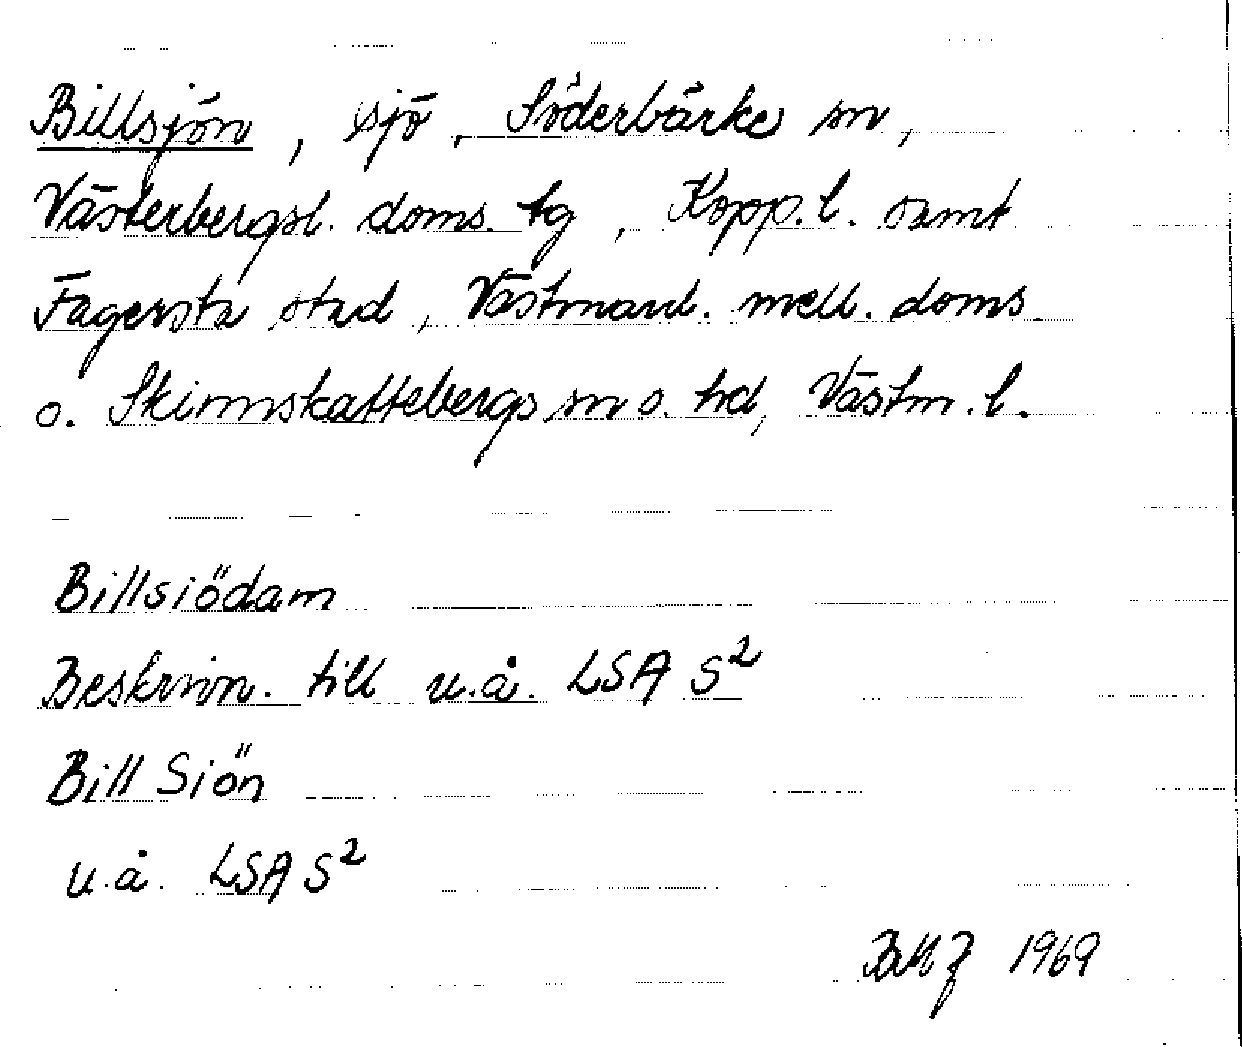 Billsjön, sjö, Söderbärke sn,
Västerbergsl. doms. tg, Kopp.l. samt
Fagersta stad, Västmanl. mell. doms.
o. Skinnskattebergs sn o. hd, Västm.l.
Billsiödam
Beskrivn. till u.å. LSA S²
Bill Siön
u.å. LSA S²
1969